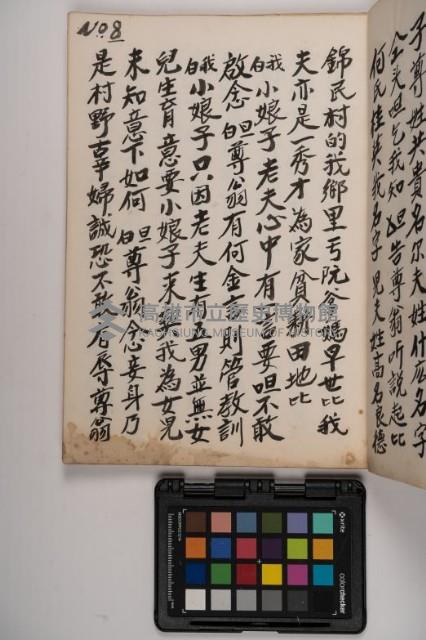 子尊姓共貴名尔夫姓什庅名字
仝头但乞我知 旦告尊翁听說起比
何氏桂英我名字 見夫姓高名良德
錦民村的我鄉里丐阮爹媽早世比我
夫亦是一秀才為家貧耕田地比
我白小娘子老夫心中有 要呾不敢
啟念 旦白尊翁有何金言則管教訓
我白小娘子只因老夫生有 男並無女
兒生育意要小娘子來 我為女兒
未知意下如何 旦白尊翁念妾身乃
是村野辛婦誠恐不敢 辱尊翁
No 8
高雄市立歷史博物館
KAOHSIUNG MUSEUM OF HISTORY
x-rite
colorchecker